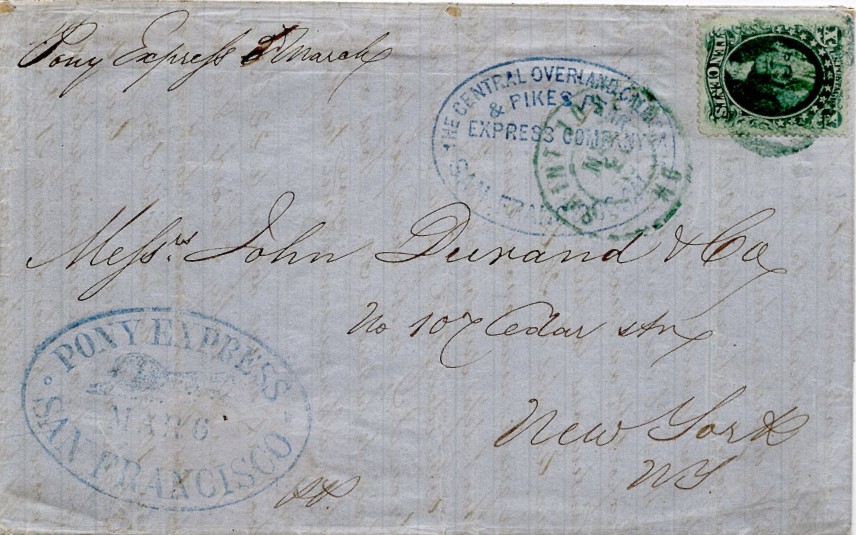 Pony Express
March
THE CENTRAL OVERLAND
& PIKES
EXPRESS COMPANY
SAN
Messrs John Durand & Co
No 107 Cedar str
New York
NY.
PONY EXPRESS
MAR 6
SAN FRANCISCO